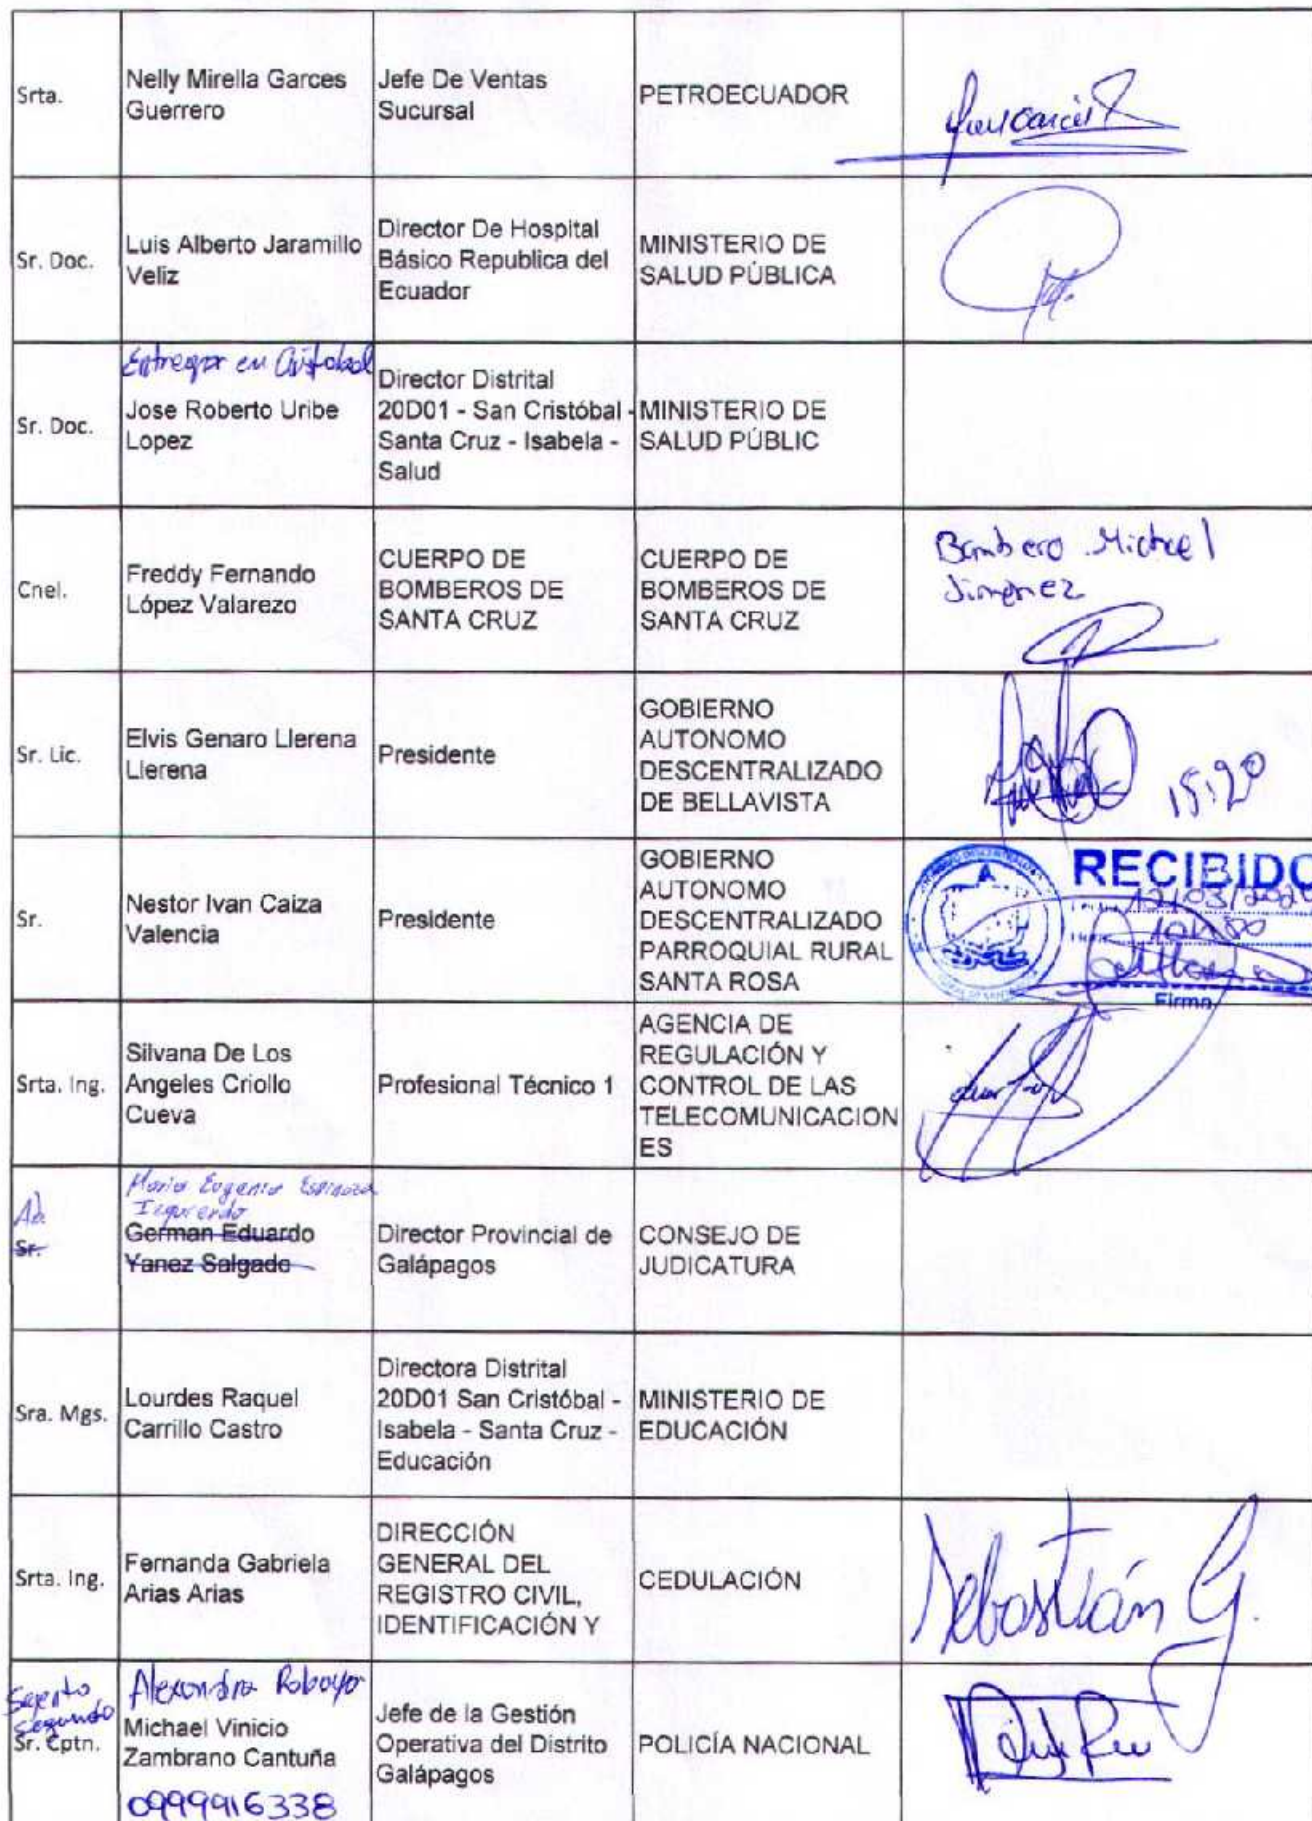 Srta.
Nelly Mirella Garces
Guerrero
Jefe De Ventas
Sucursal
PETROECUADOR
Sr. Doc.
Luis Alberto Jaramillo
Veliz
Director De Hospital
Básico Republica del
Ecuador
MINISTERIO DE
SALUD PÚBLICA
Entregar en Cristobal
Sr. Doc.
Jose Roberto Uribe
Lopez
Director Distrital
20D01 - San Cristóbal -
Santa Cruz - Isabela -
Salud
MINISTERIO DE
SALUD PÚBLIC
Cnel.
Freddy Fernando
López Valarezo
CUERPO DE
BOMBEROS DE
SANTA CRUZ
CUERPO DE
BOMBEROS DE
SANTA CRUZ
Bombero Michael
Jimenez
Sr. Lic.
Elvis Genaro Llerena
Llerena
Presidente
GOBIERNO
AUTONOMO
DESCENTRALIZADO
DE BELLAVISTA
15:20
Sr.
Nestor Ivan Caiza
Valencia
Presidente
GOBIERNO
AUTONOMO
DESCENTRALIZADO
PARROQUIAL RURAL
SANTA ROSA
RECIBIDO
12/03/202
Firma
Srta. Ing.
Silvana De Los
Angeles Criollo
Cueva
Profesional Técnico 1
AGENCIA DE
REGULACIÓN Y
CONTROL DE LAS
TELECOMUNICACION
ES
Ab.
Sr.
Maria Eugenia Espinoza
Izquierdo
German Eduardo
Yanez Salgado
Director Provincial de
Galápagos
CONSEJO DE
JUDICATURA
Sra. Mgs.
Lourdes Raquel
Carrillo Castro
Directora Distrital
20D01 San Cristóbal -
Isabela - Santa Cruz -
Educación
MINISTERIO DE
EDUCACIÓN
Srta. Ing.
Fernanda Gabriela
Arias Arias
DIRECCIÓN
GENERAL DEL
REGISTRO CIVIL,
IDENTIFICACIÓN Y
CEDULACIÓN
Sebastián G.
Segundo
Sr. Cptn.
Alexandra Robayo
Michael Vinicio
Zambrano Cantuña
0999916338
Jefe de la Gestión
Operativa del Distrito
Galápagos
POLICÍA NACIONAL